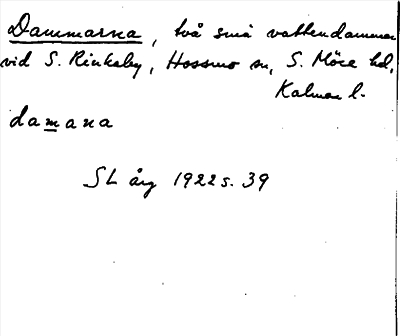 Dammarna, två små vattendammar
vid S. Rinkaby, Hossmo sn, S. Möre hd,
Kalmar l.
damana
SL årg 1922 s. 39